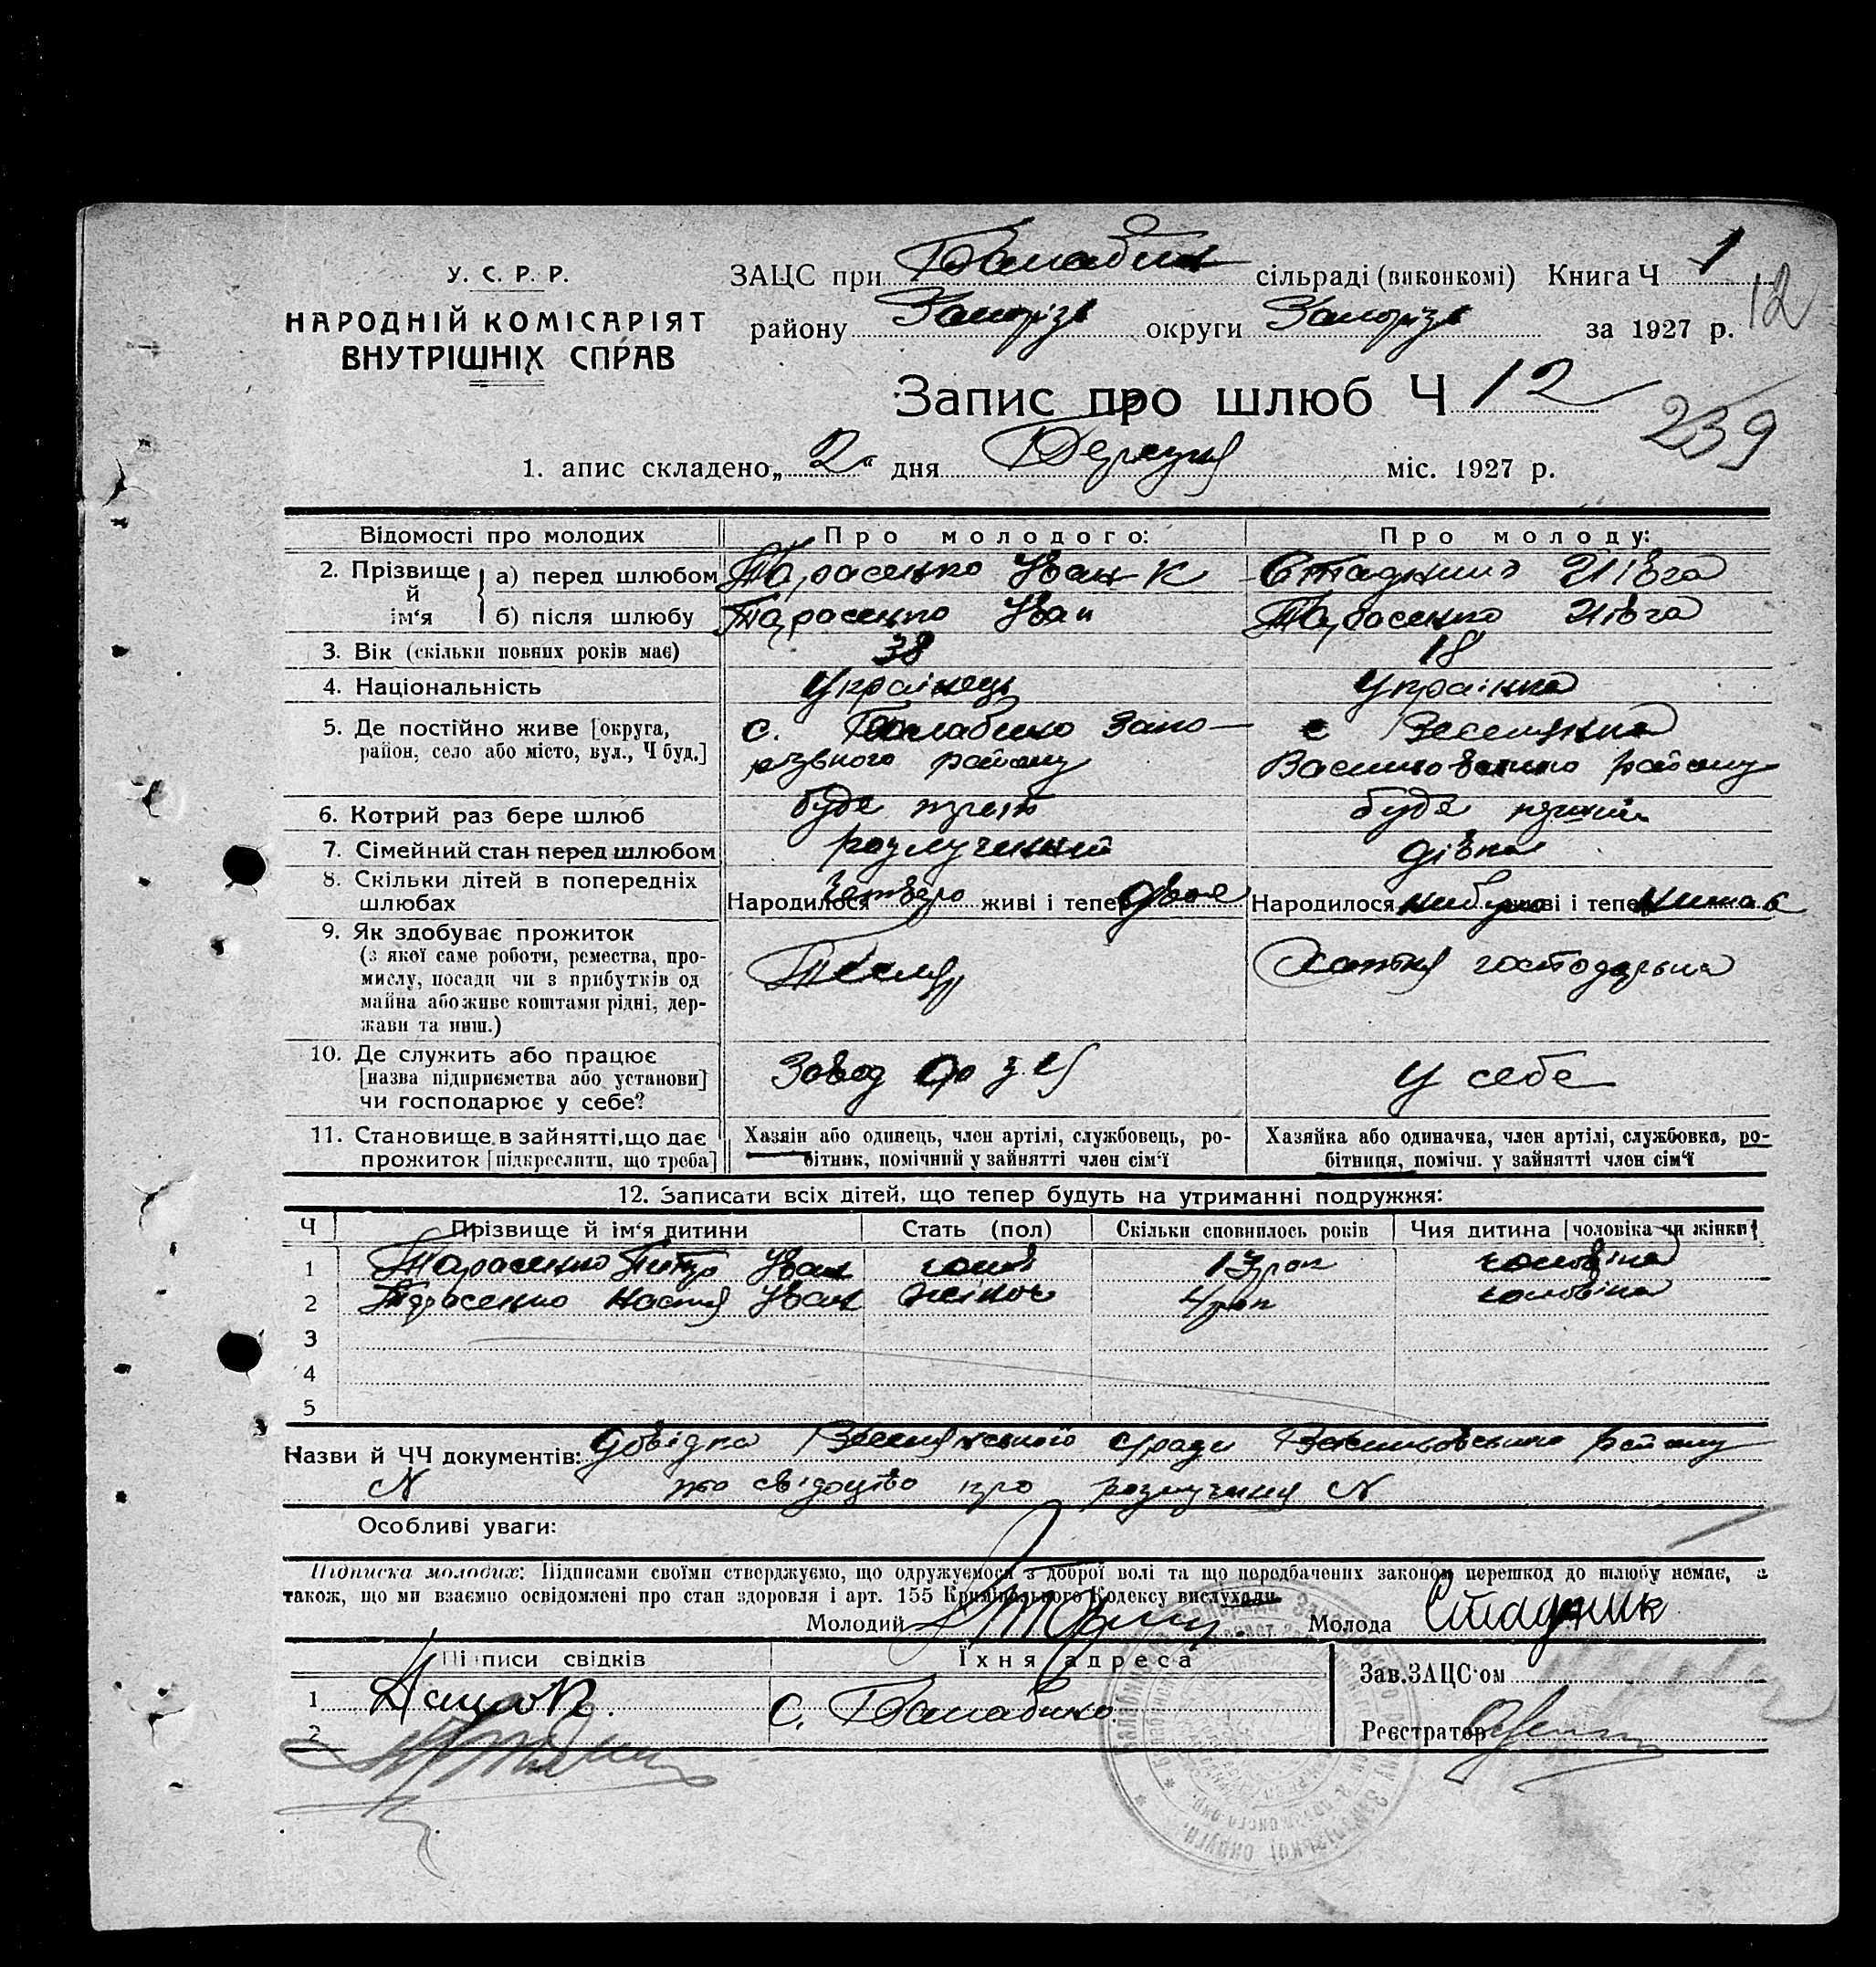 У. С. Р. Р.
НАРОДНІЙ КОМІСАРІЯТ
ВНУТРІШНІХ СПРАВ
ЗАЦС при Балабин сільраді (виконкомі) Книга Ч 1
району Запоріз округи Запоріз за 1927 р.
12
Запис про шлюб Ч 12
239
1. апис складено „ 2 “ дня Березня міс. 1927 р.
Відомості про молодих Про молодого: Про молоду:
2. Прізвище й ім‘я а) перед шлюбом Тарасенко Іван К Стаднип Ивга
б) після шлюбу Тарасенко Іван Тарасенко Ивга
3. Вік (скільки повних років має) 38 18
4. Національність Українець Українка
5. Де постійно живе [округа, с. Балабино Запо- с Веселянка
район, село або місто, вул., Ч буд.] різького району Васильовсько району
6. Котрий раз бере шлюб буде трет буде
7. Сімейний стан перед шлюбом розлучений дівка
8. Скільки дітей в попередніх
шлюбах Народилося четверо живі і тепер двоє Народилося небуло живі і тепе нима є
9. Як здобуває прожиток
(з якої саме роботи, ремества, про- Хатня господарька
мислу, посади чи з прибутків од
майна або живе коштами рідні, дер-
жави та инш.)
10. Де служить або працює
[назва підприємства або установи] Завод У себе
чи господарює у себе?
11. Становище в зайнятті, що дає Хазяїн або одинець, член артілі, службовець, ро- Хазяйка або одиначка, член артілі, службовка, ро-
прожиток [підкреслити, що треба] бітник, помічний у зайнятті член сім‘ї бітниця, помічн. у зайнятті член сім‘ї
12. Записати всіх дітей, що тепер будуть на утриманні подружжя:
Ч Прізвище й ім‘я дитини Стать (пол) Скільки сповнилось років Чия дитина [чоловіка чи жінки]
1 Тарасенко Петро Іван чолов 13 рок чоловіка
2 Тарасенко Настя Іван жіноч 4 рок чоловіка
3
4
5
Назви й ЧЧ документів: Довідка Веселянської с/ради Васильовського району
N то свідоцтво про розлучення N
Особливі уваги:
Підписка молодих: Підписами своїми стверджуємо, що одружуємося з доброї волі та що передбачених законом перешкод до шлюбу немає, а
також, що ми взаємно освідомлені про стан здоровля і арт. 155 Кримінального Кодексу вислухали.
Молодий Молода Стаднік
Підписи свідків Їхня адреса Зав. ЗАЦС‘ом
1 с. Балабино
2 Реєстратор